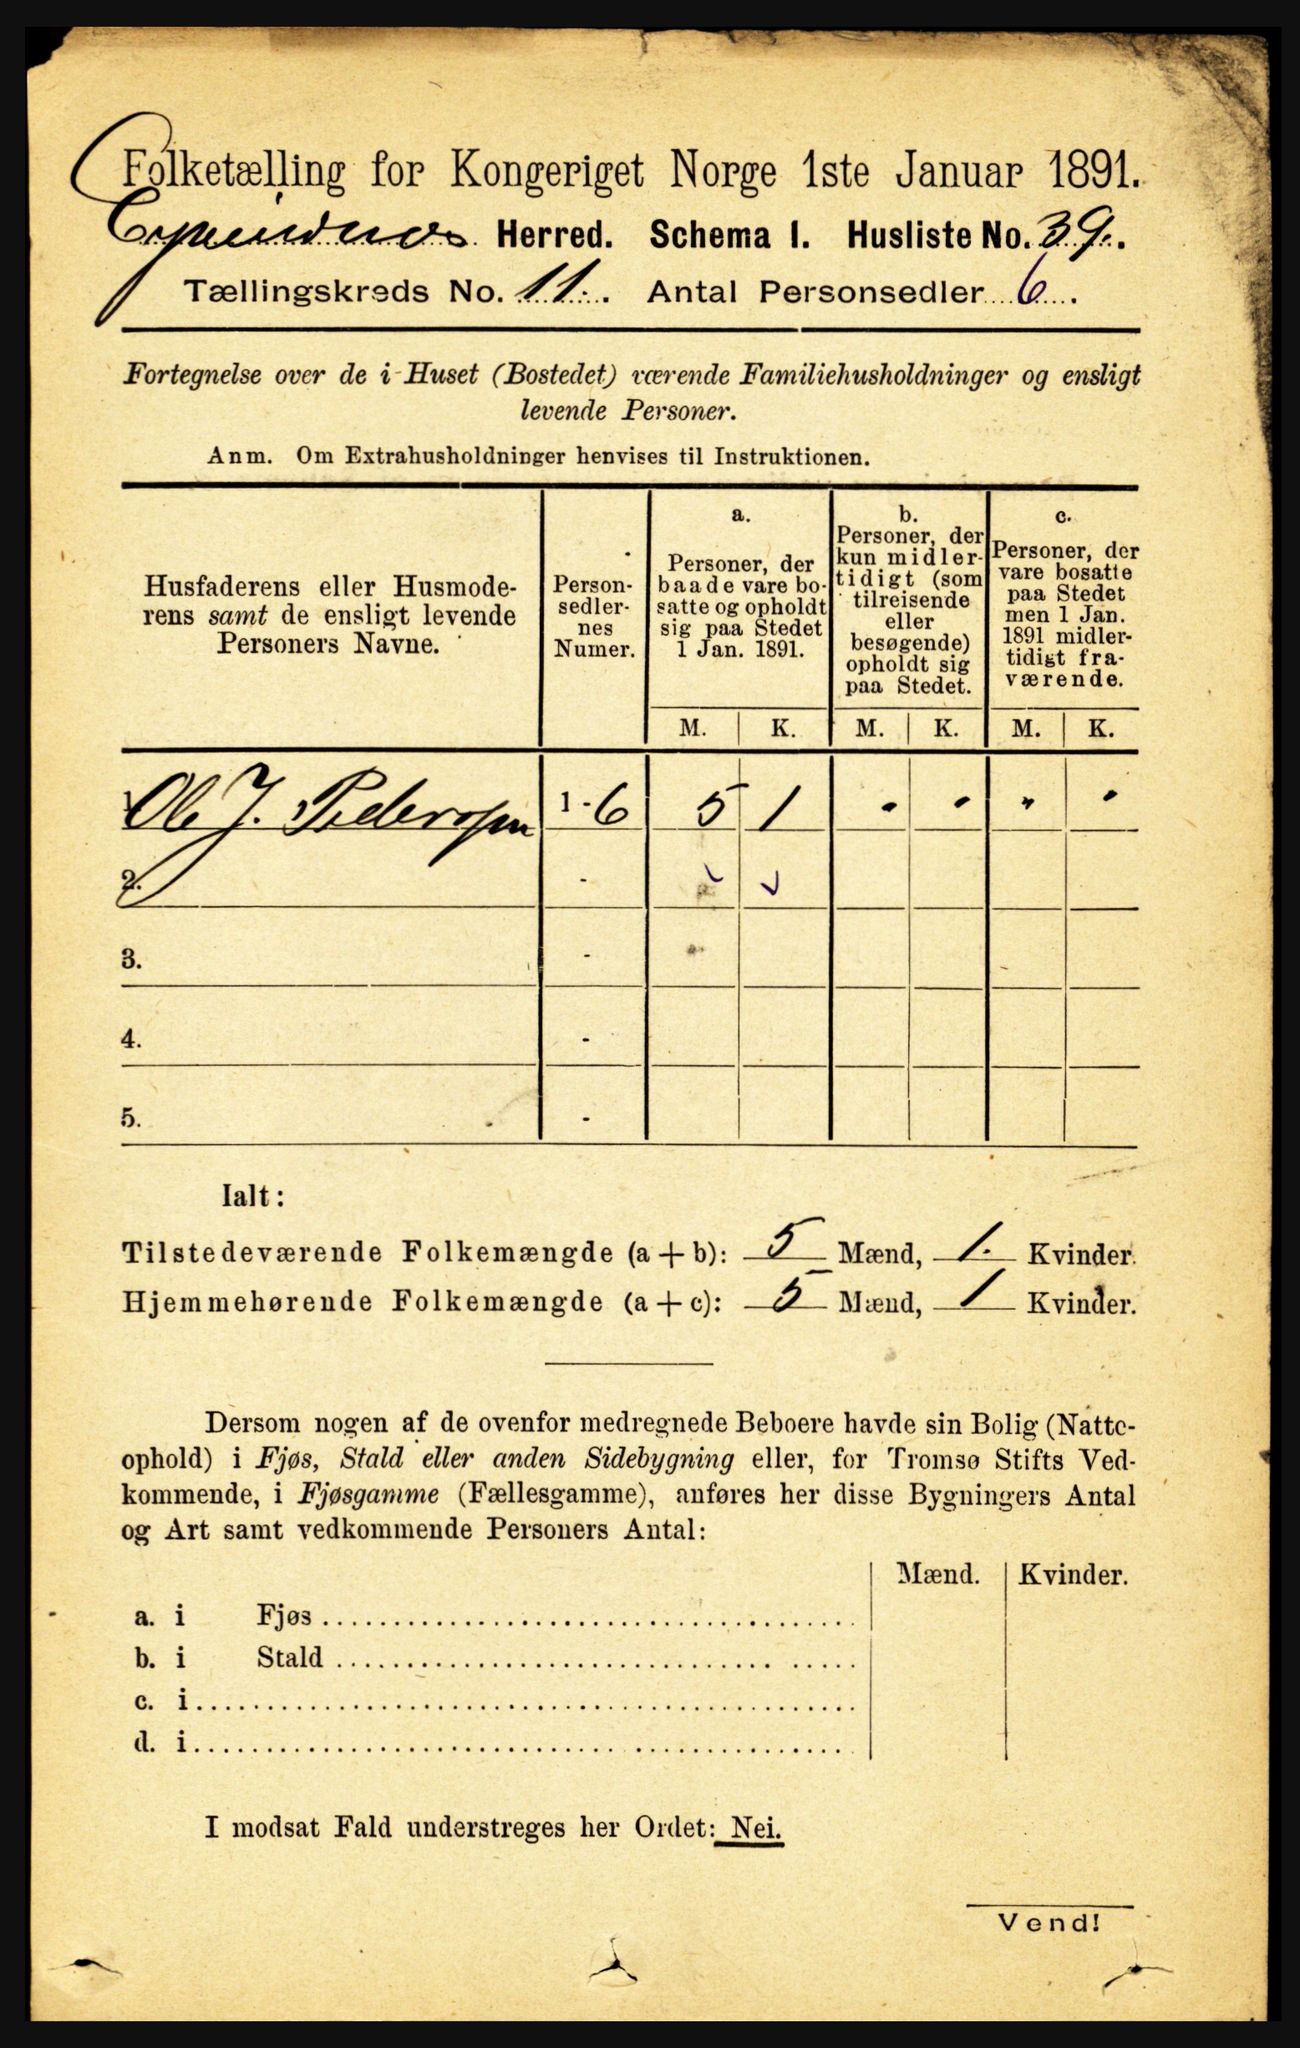 Folketælling for Kongeriget Norge 1ste Januar 1891.
Herred. Schema I. Husliste No. 39.
Tællingskreds No. 11. Antal Personsedler 6.
Fortegnelse over de i Huset (Bostedet) værende Familiehusholdninger og ensligt
levende Personer.
Anm. Om Extrahusholdninger henvises til Instruktionen.
Husfaderens eller Husmode-
rens samt de ensligt levende
Personers Navne.
Person-
sedler-
nes
Numer.
a.
Personer, der
baade vare bo-
satte og opholdt
sig paa Stedet
1 Jan. 1891.
b.
Personer, der
kun midler-
tidigt (som
tilreisende
eller
besøgende)
opholdt sig
paa Stedet.
c.
Personer, der
vare bosatte
paa Stedet
men 1 Jan.
1891 midler-
tidigt fra-
værende.
M. K. M. K. M. K.
Ole J. Pedersen 1 - 6 5 1 " " " "
2. -
3. -
4. -
5. -
Ialt:
Tilstedeværende Folkemængde (a + b): 5 Mænd, 1. Kvinder.
Hjemmehørende Folkemængde (a + c): 5 Mænd, 1 Kvinder.
Dersom nogen af de ovenfor medregnede Beboere havde sin Bolig (Natte-
ophold) i Fjøs, Stald eller anden Sidebygning eller, for Tromsø Stifts Ved-
kommende, i Fjøsgamme (Fællesgamme), anføres her disse Bygningers Antal
og Art samt vedkommende Personers Antal:
Mænd. Kvinder.
a. i Fjøs
b. i Stald
c. i
d. i
I modsat Fald understreges her Ordet: Nei.
Vend!